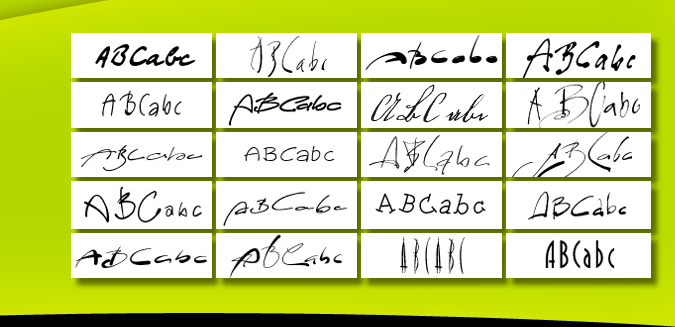 ABCabc ABCabc ABCabc ABCabc
ABCabc ABCabc ABCabc ABCabc
ABCabc ABCabc ABCabc ABCabc
ABCabc ABCabc ABCabc ABCabc
ABCabc ABCabc ABCABC ABCabc